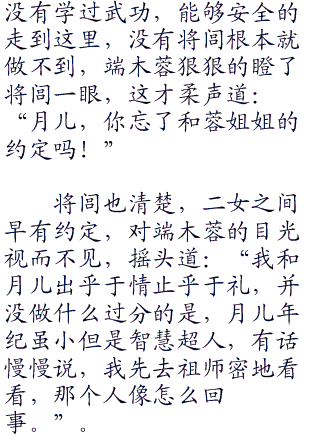 没有学过武功，能够安全的
走到这里，没有将闾根本就
做不到，端木蓉狠狠的瞪了
将闾一眼，这才柔声道：
“月儿，你忘了和蓉姐姐的
约定吗！”
将闾也清楚，二女之间
早有约定，对端木蓉的目光
视而不见，摇头道：“我和
月儿出乎于情止乎于礼，并
没做什么过分的是，月儿年
纪虽小但是智慧超人，有话
慢慢说，我先去祖师密地看
看，那个人像怎么回
事。”。